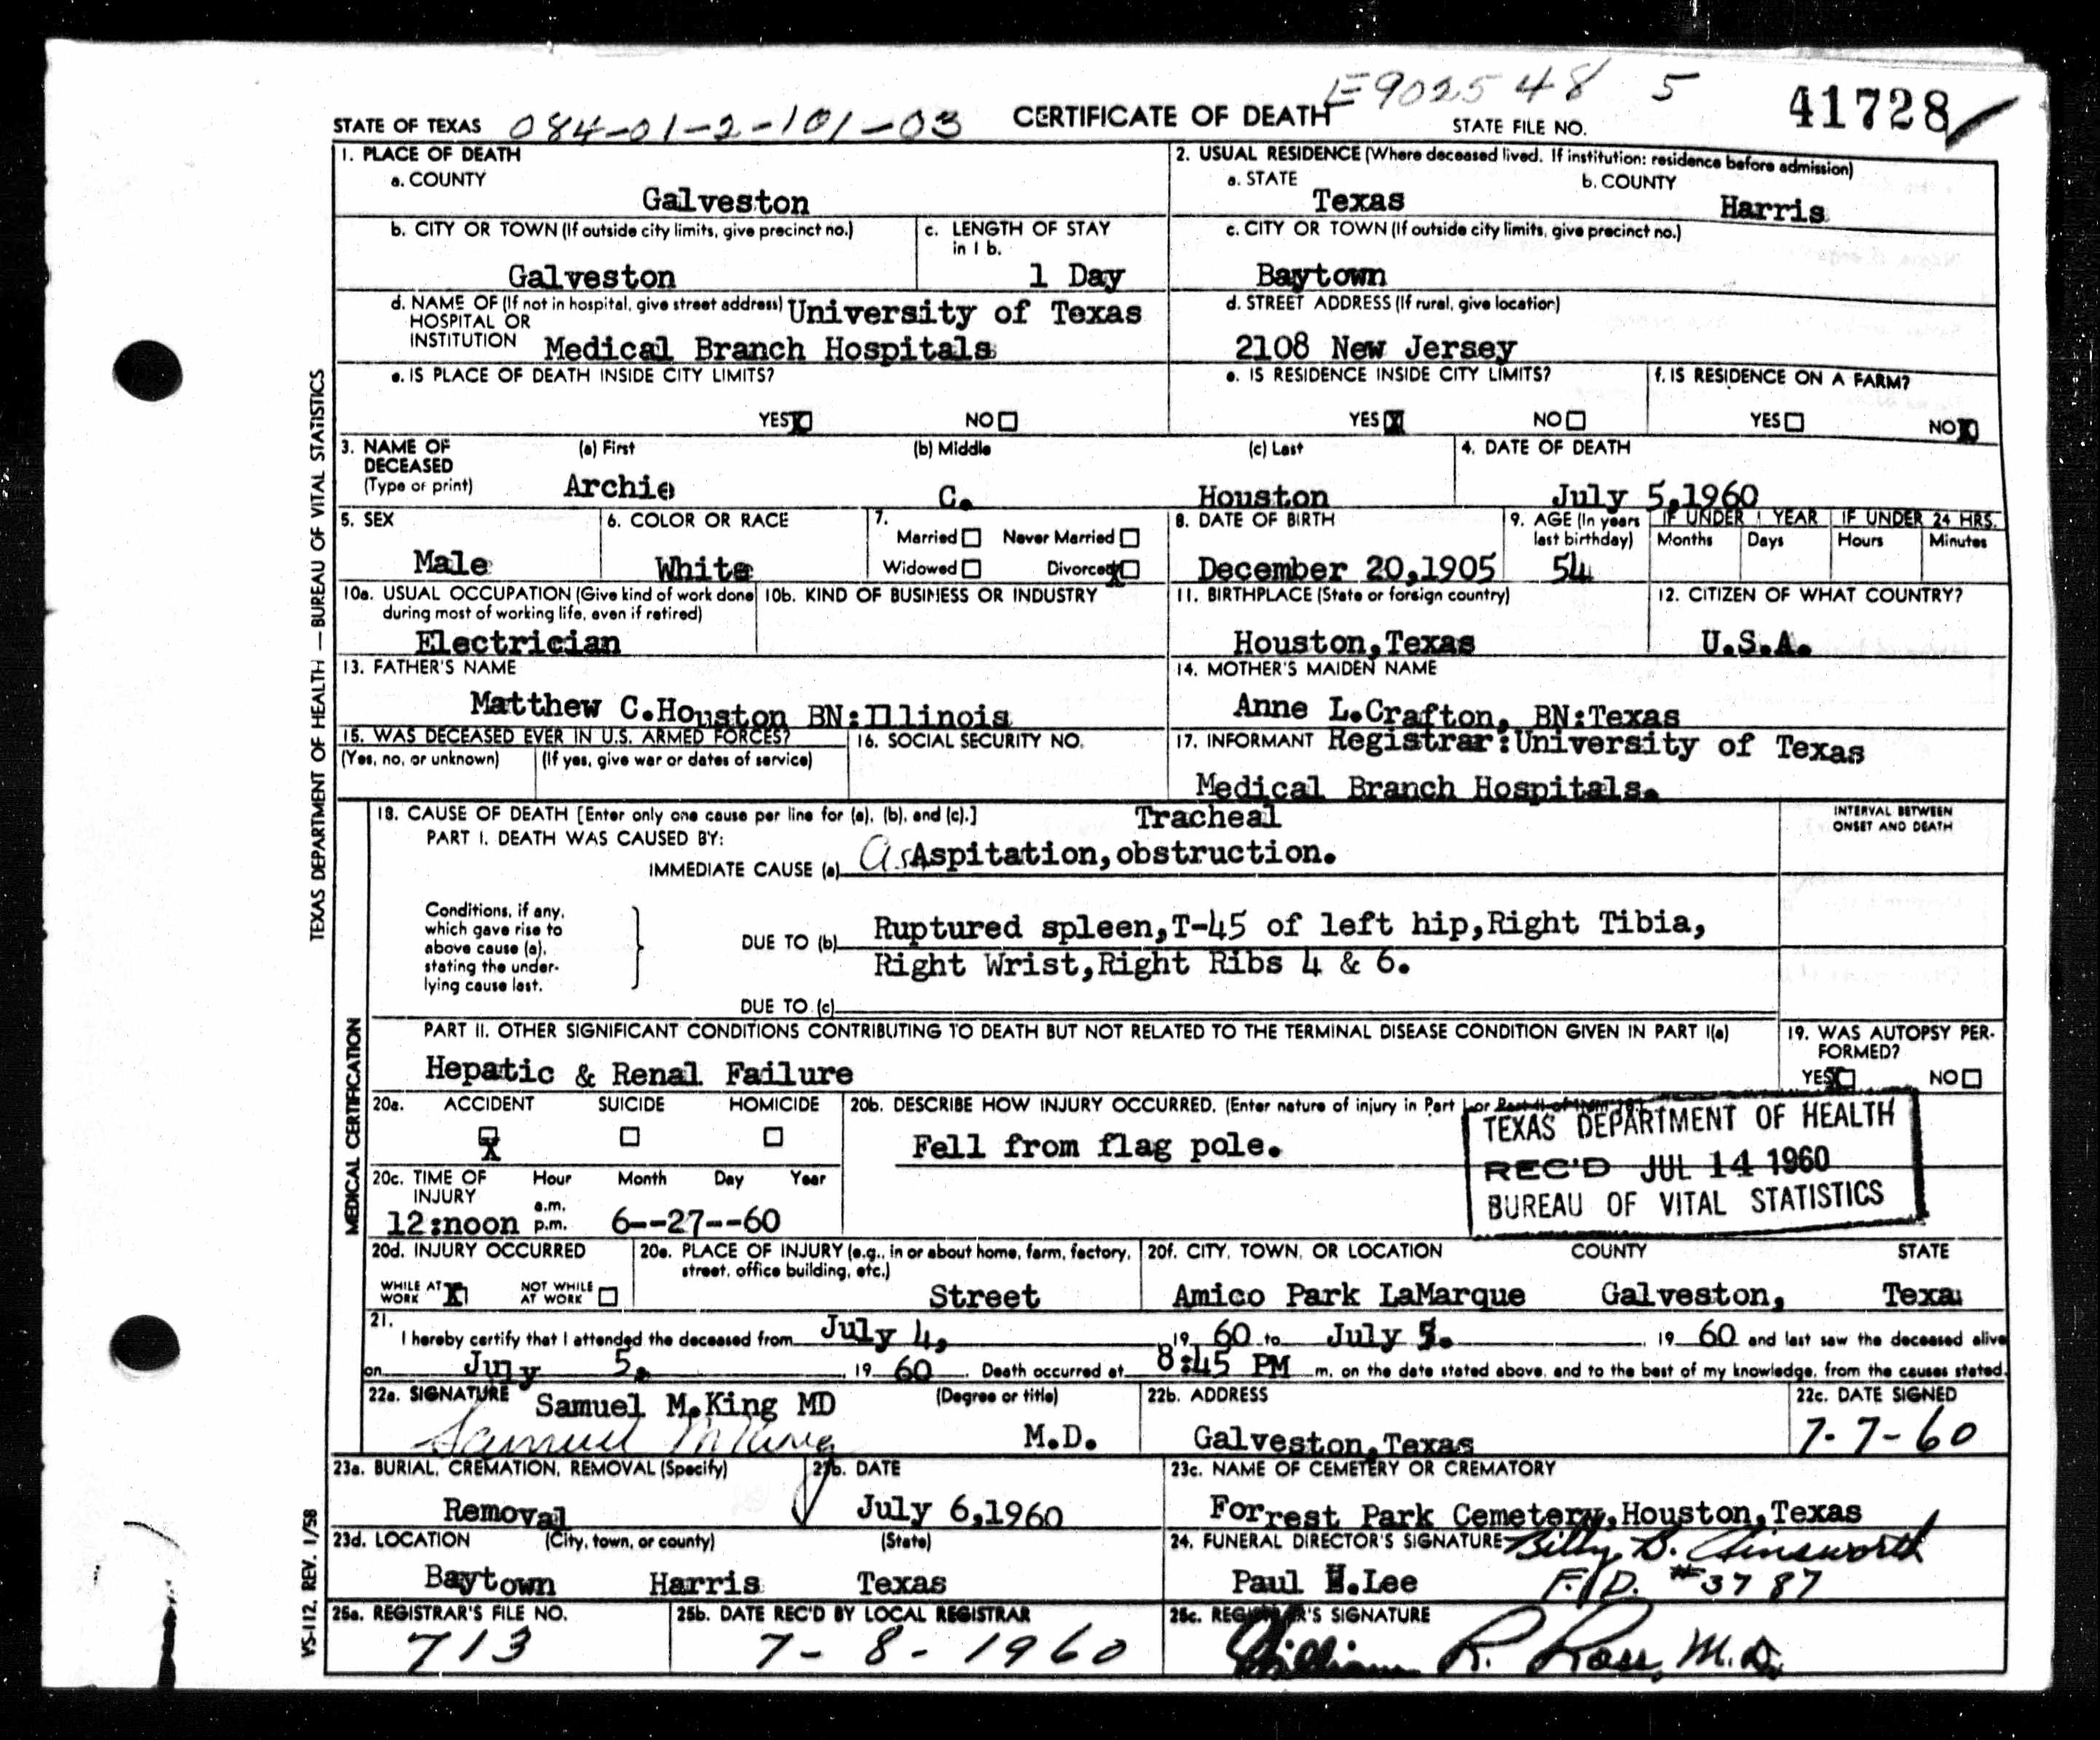 E902548 5
STATE OF TEXAS 084-01-2-101-03 CERTIFICATE OF DEATH STATE FILE NO. 41728
1. PLACE OF DEATH
a. COUNTY
Galveston
2. USUAL RESIDENCE (Where deceased lived. If institution: residence before admission)
a. STATE b. COUNTY
Texas Harris
b. CITY OR TOWN (If outside city limits, give precinct no.)
Galveston
c. LENGTH OF STAY
in 1 b.
1 Day
c. CITY OR TOWN (If outside city limits, give precinct no.)
Baytown
d. NAME OF (If not in hospital, give street address) University of Texas
HOSPITAL OR
INSTITUTION Medical Branch Hospitals
d. STREET ADDRESS (If rural, give location)
2108 New Jersey
e. IS PLACE OF DEATH INSIDE CITY LIMITS?
YES X NO
e. IS RESIDENCE INSIDE CITY LIMITS?
YES X NO
f. IS RESIDENCE ON A FARM?
YES NO X
3. NAME OF
DECEASED
(Type or print)
(a) First (b) Middle (c) Last
Archie C. Houston
4. DATE OF DEATH
July 5,1960
5. SEX
Male
6. COLOR OR RACE
White
7.
Married Never Married
Widowed Divorced X
8. DATE OF BIRTH
December 20,1905
9. AGE (In years
last birthday)
54
IF UNDER 1 YEAR IF UNDER 24 HRS.
Months Days Hours Minutes
10a. USUAL OCCUPATION (Give kind of work done
during most of working life, even if retired)
Electrician
10b. KIND OF BUSINESS OR INDUSTRY
11. BIRTHPLACE (State or foreign country)
Houston,Texas
12. CITIZEN OF WHAT COUNTRY?
U.S.A.
13. FATHER'S NAME
Matthew C.Houston BN:Illinois
14. MOTHER'S MAIDEN NAME
Anne L.Crafton, BN:Texas
15. WAS DECEASED EVER IN U.S. ARMED FORCES?
(Yes, no, or unknown) (If yes, give war or dates of service)
16. SOCIAL SECURITY NO.
17. INFORMANT Registrar:University of Texas
Medical Branch Hospitals.
18. CAUSE OF DEATH [Enter only one cause per line for (a), (b), and (c).]
PART I. DEATH WAS CAUSED BY:
Tracheal
IMMEDIATE CAUSE (a) Aspitation,obstruction.
INTERVAL BETWEEN
ONSET AND DEATH
Conditions, if any,
which gave rise to
above cause (a),
stating the under-
lying cause last.
DUE TO (b) Ruptured spleen,T-45 of left hip,Right Tibia,
Right Wrist,Right Ribs 4 & 6.
DUE TO (c)
PART II. OTHER SIGNIFICANT CONDITIONS CONTRIBUTING TO DEATH BUT NOT RELATED TO THE TERMINAL DISEASE CONDITION GIVEN IN PART I(a)
Hepatic & Renal Failure
19. WAS AUTOPSY PER-
FORMED?
YES X NO
20a. ACCIDENT SUICIDE HOMICIDE
X
20b. DESCRIBE HOW INJURY OCCURRED. (Enter nature of injury in Part I or
Fell from flag pole.
TEXAS DEPARTMENT OF HEALTH
REC'D JUL 14 1960
BUREAU OF VITAL STATISTICS
20c. TIME OF
INJURY
Hour Month Day Year
a.m.
p.m.
12:noon 6--27--60
20d. INJURY OCCURRED
WHILE AT
WORK X
NOT WHILE
AT WORK
20e. PLACE OF INJURY (e.g., in or about home, farm, factory,
street, office building, etc.)
Street
20f. CITY, TOWN, OR LOCATION COUNTY STATE
Amico Park LaMarque Galveston, Texa
21.
I hereby certify that I attended the deceased from July 4, 19 60 to July 5. 19 60 and last saw the deceased alive
on July 5. 19 60. Death occurred at 8:45 PM m, on the date stated above, and to the best of my knowledge, from the causes stated.
22a. SIGNATURE (Degree or title)
Samuel M.King MD
Samuel M King M.D.
22b. ADDRESS
Galveston,Texas
22c. DATE SIGNED
7-7-60
23a. BURIAL, CREMATION, REMOVAL (Specify)
Removal
23b. DATE
July 6,1960
23c. NAME OF CEMETERY OR CREMATORY
Forrest Park Cemetery,Houston,Texas
23d. LOCATION (City, town, or county) (State)
Baytown Harris Texas
24. FUNERAL DIRECTOR'S SIGNATURE Billy B. Ainsworth
Paul H.Lee F.D. #3787
25a. REGISTRAR'S FILE NO.
713
25b. DATE REC'D BY LOCAL REGISTRAR
7-8-1960
25c. REGISTRAR'S SIGNATURE
William R. Ross, M.D.
TEXAS DEPARTMENT OF HEALTH — BUREAU OF VITAL STATISTICS
MEDICAL CERTIFICATION
VS-112, REV. 1/58